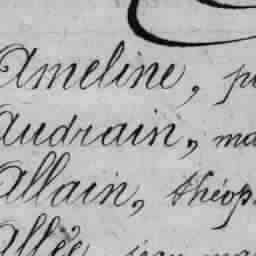 Ameline, pi
Audrain, ma
Allain, théop
Allée, jean ma